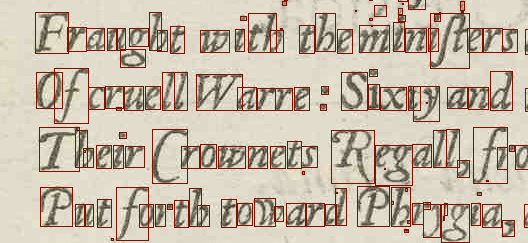 Fraught with the miniſters
Of cruell Warre : Sixty and
Their Crownets Regall, fro
Put forth toward Phrygia,